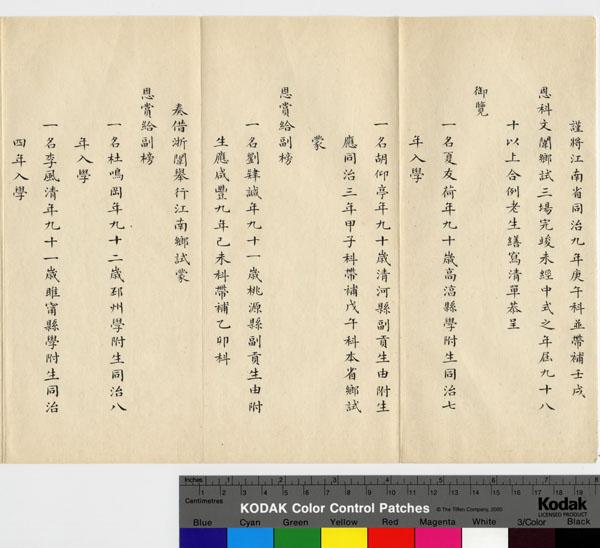 謹將江南省同治九年庚午科並帶補壬戌
恩科文闈鄉試三場完竣未經中式之年屆九十八
十以上合例老生繕寫清單恭呈
御覽
一名夏友荷年九十歲高淳縣學附生同治七
年入學
一名胡仰亭年九十歲清河縣副貢生由附生
應同治三年甲子科帶補戊午科本省鄉試
蒙
恩賞給副榜
一名劉肄誠年九十一歲桃源縣副貢生由附
生應咸豐九年己未科帶補乙卯科
奏借浙闈舉行江南鄉試蒙
恩賞給副榜
一名杜鳴岡年九十二歲邳州學附生同治八
年入學
一名李風清年九十一歲睢甯縣學附生同治
四年入學
Inches 1 2 3 4 5 6 7 8
Centimetres 1 2 3 4 5 6 7 8 9 10 11 12 13 14 15 16 17 18 19
KODAK Color Control Patches © The Tiffen Company, 2000 Kodak
LICENSED PRODUCT
Blue Cyan Green Yellow Red Magenta White 3/Color Black